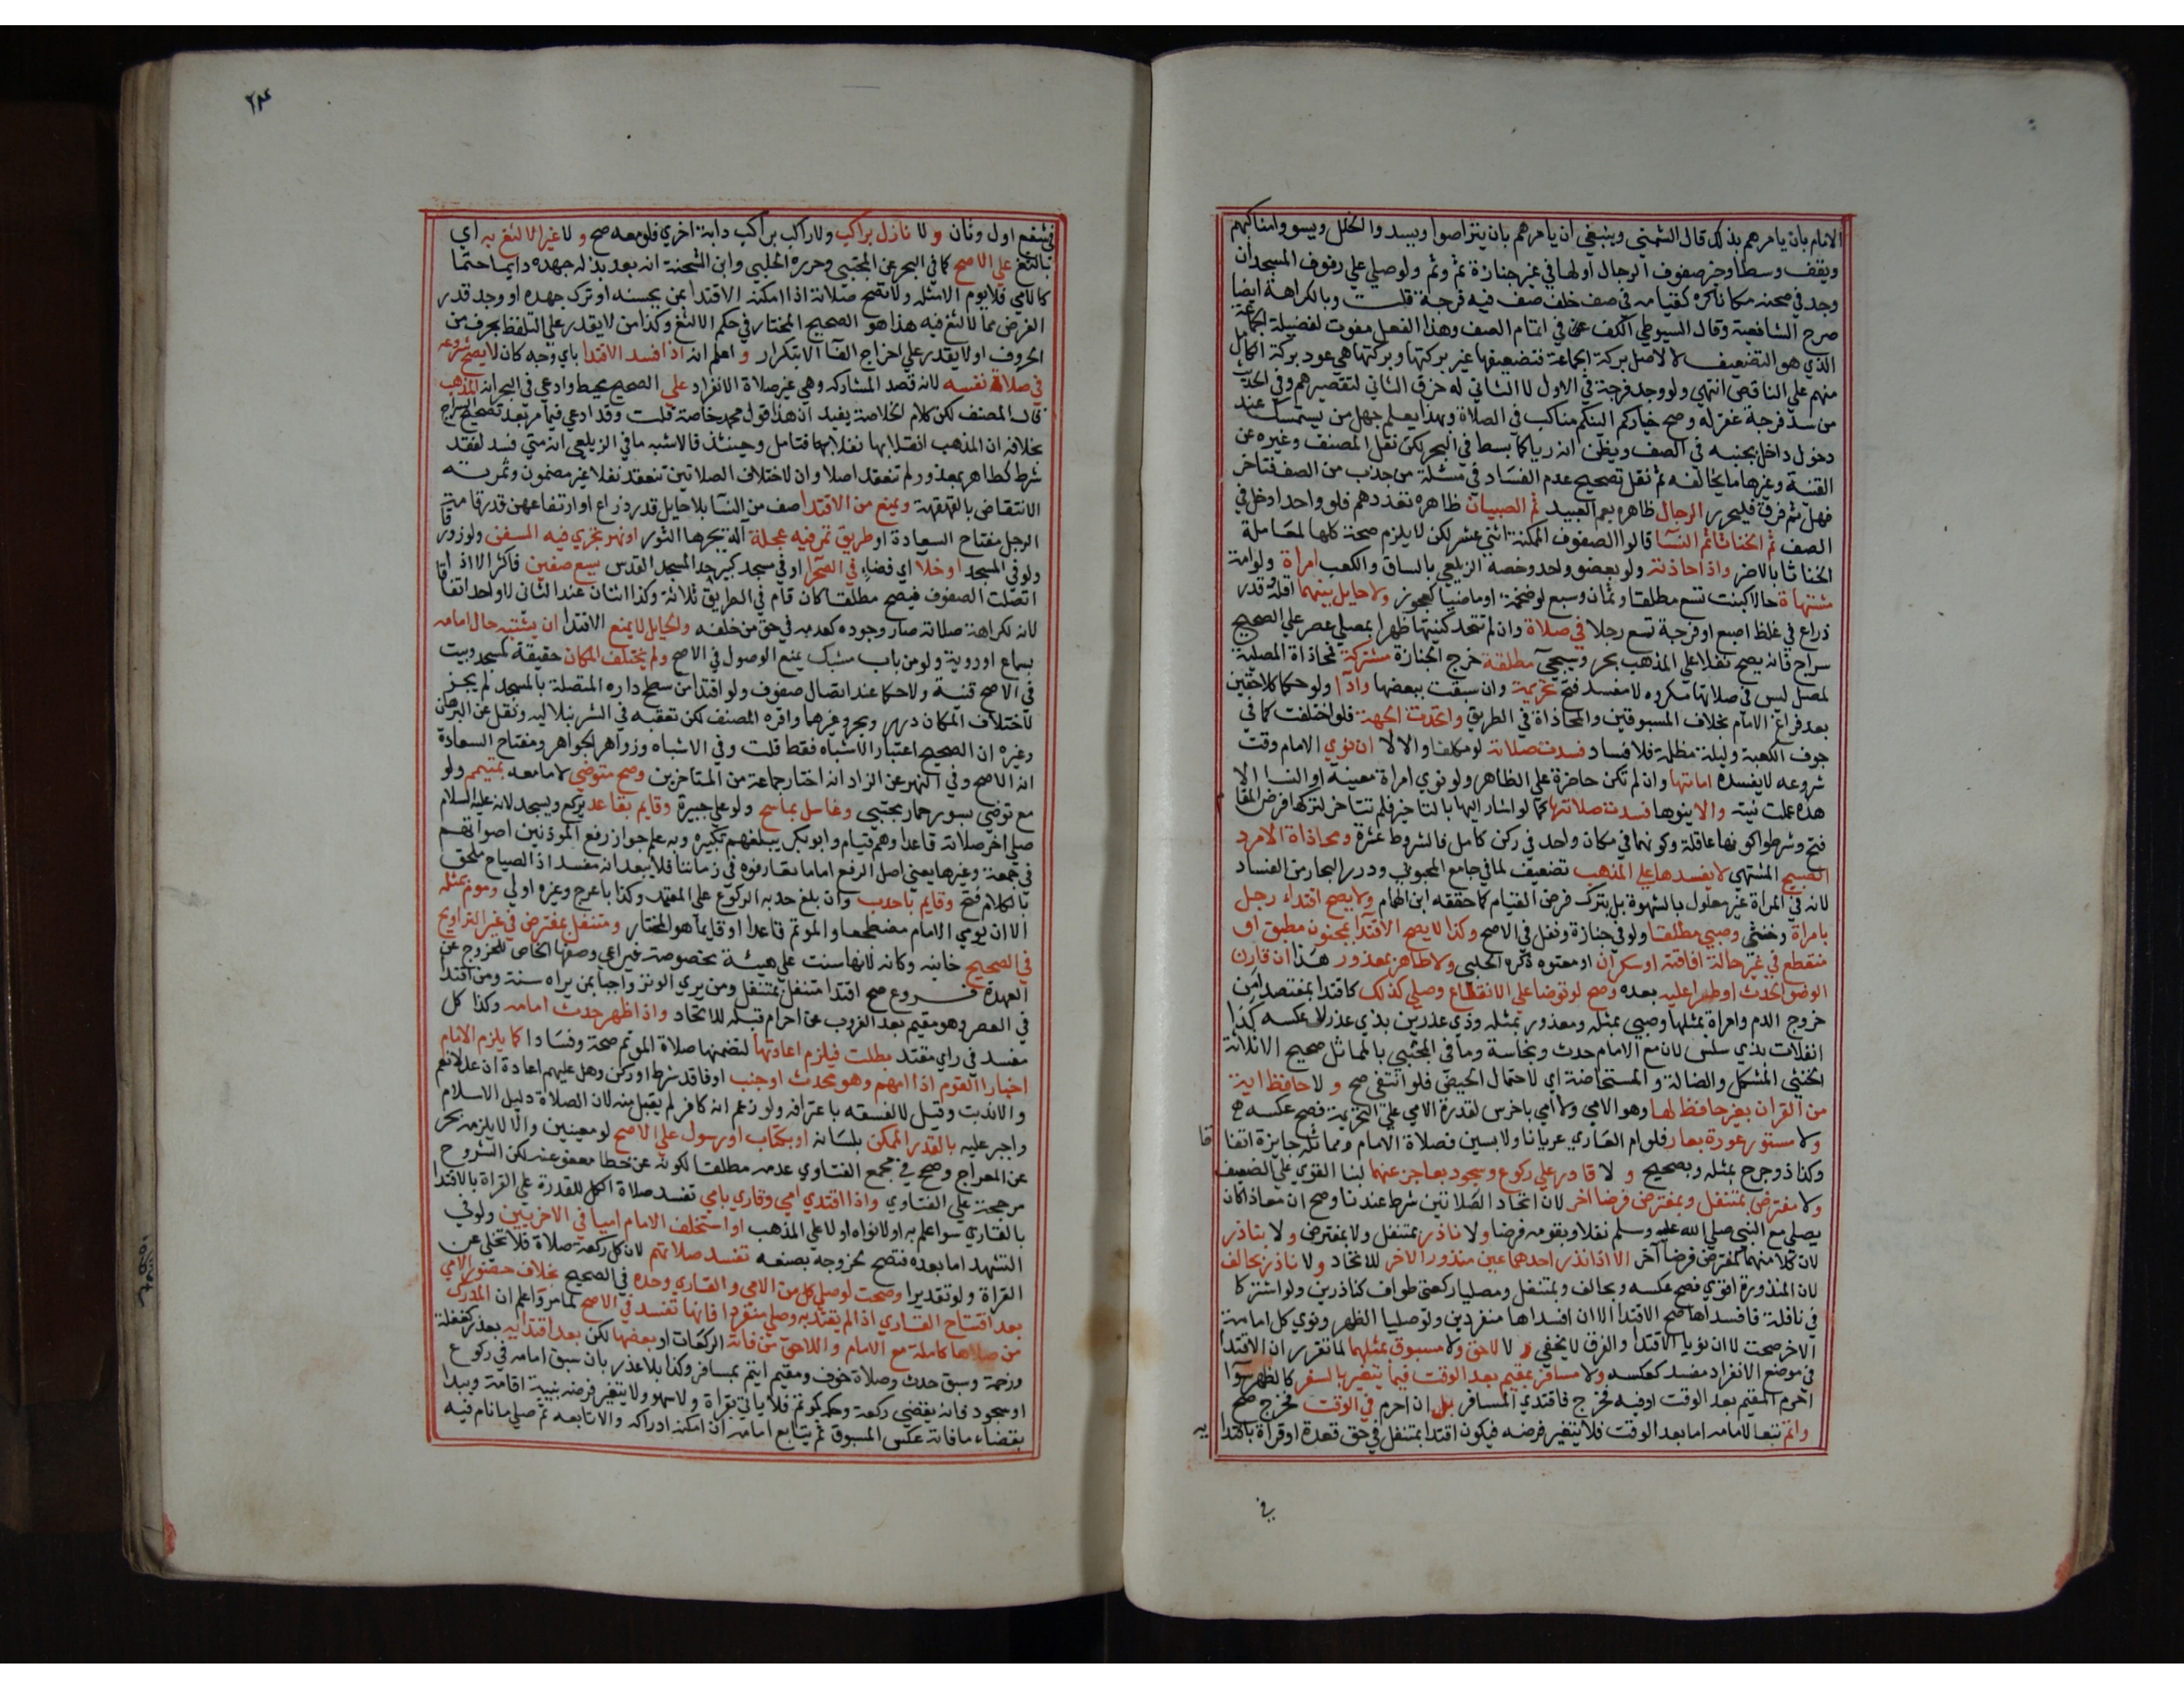 الامام بان يامرهم بذلك قال الشمني وينبغي ان يامرهم بان يتراصوا ويسدوا الخلل ويسووا مناكبهم
ويقف وسطا وخير صفوف الرجال اولها في غير جنازة ثم وثم ولو صلي علي رفوف المسجد ان
وجد في صحنه مكانا كره كقيامه في صف خلف صف فيه فرجة قلت وبالكراهة ايضا
صرح الشافعية وقال السيوطي الكف عن في اتمام الصف وهذا الفعل مفوت لفضيلة الجماعة
الذي هو التضعيف لا لاصل بركة الجماعة فتضعيفها غير بركتها وبركتها هي عود بركة الكامل
منهم علي الناقص انتهي ولو وجد فرجة في الاول لا الثاني له خرق الثاني لتقصيرهم وفي الحديث
من سد فرجة غفر له وصح خياركم الينكم مناكب في الصلاة وبهذا يعلم جهل من يستمسك عند
دخول داخل بجنبه في الصف ويظن انه رياء كما بسط في البحر لكن نقل المصنف وغيره عن
القنية وغيرها ما يخالفه ثم نقل تصحيح عدم الفساد في مسئلة من جذب من الصف فتاخر
فهل ثم فرق فليحرر الرجال ظاهره يعم العبيد ثم الصبيان ظاهره تعددهم فلو واحدا دخل في
الصف ثم الخناثا ثم النسا قالوا الصفوف الممكنة اثني عشر لكن لا يلزم صحة كلها لمعاملة
الخناثا بالاضر واذا حاذته ولو بعضو واحد وخصه الزيلعي بالساق والكعب امراة ولو امة
مشتهاة حالا كبنت تسع مطلقا وثمان وسبع لو ضخمة او ماضيا كعجوز ولا حايل بينهما اقله قدر
ذراع في غلظ اصبع او فرجة تسع رجلا في صلاة وان لم تتحد كنيتها ظهرا بمصلي عصر علي الصحيح
سراج فانه يصح نفلا علي المذهب بحر وسيجي مطلقة خرج الجنازة مشتركة فمحاذاة المصلية
لمصل ليس في صلاتها مكروه لا مفسد فتح تحريمة وان سبقت ببعضها وادا ولو حكما كلاحقين
بعد فراغ الامام بخلاف المسبوقين والمحاذاة في الطريق واتحدت الجهة فلو اختلفت كما في
جوف الكعبة وليلة مظلمة فلا فساد فسدت صلاته لو مكلفا والا لا ان نوي الامام وقت
شروعه لا بعده امامتها وان لم تكن حاضرة علي الظاهر ولو نوي امراة معينة او النسا الا
هذه عملت نيته والا ينوها فسدت صلاتها كما لو اشار اليها بالتاخر فلم تتاخر لتركها فرض المقام
فتح وشرطوا كونها عاقلة وكونهما في مكان واحد في ركن كامل فالشروط عشرة ومحاذاة الامرد
الصبيح المشتهي لا يفسدها علي المذهب تضعيف لما في جامع المحبوبي ودرر البحار من الفساد
لانه في المراة غير معلول بالشهوة بل بترك فرض القيام كما حققه ابن الهام ولا يصح اقتداء رجل
بامراة وخنثي وصبي مطلقا ولو في جنازة ونفل في الاصح وكذا لا يصح الاقتدا بمجنون مطبق او
متقطع في غير حالة افاقته او سكران او معتوه ذكره الحلبي ولا طاهر بمعذور هذا ان قارن
الوضو الحدث او طرا عليه بعده وصح لو توضا علي الانقطاع وصلي كذلك كاقتدا بمفتصد امن
خروج الدم وامراة بمثلها وصبي بمثله ومعذور بمثله وذي عذرين بذي عذر لا عكسه كذا
انفلات بذي سلس لان مع الامام حدث ونجاسة وما في المجتبي بالمماثل صحيح الا ثلاثة
الخنثي المشكل والضالة والمستحاضة اي لاحتمال الحيض فلو انتفي صح و لا حافظ اية
من القران بغير حافظ لها وهو الامي ولا امي باخرس لقدرة الامي علي التحريمة فصح عكسه
ولا مستور عورة بعار فلو ام العاري عريانا ولابسين فصلاة الامام ومماثله جايزة اتفاقا
وكذا ذو جرح بمثله وبصحيح و لا قادر علي ركوع وسجود بعاجز عنهما لبنا القوي علي الضعيف
ولا مفترض بمتنفل وبمفترض فرضا اخر لان اتحاد الصلاتين شرط عندنا وصح ان معاذا كان
يصلي مع النبي صلي الله عليه وسلم نفلا وبقومه فرضا ولا ناذر بمتنفل ولا بمفترض ولا بناذر
لان كلا منهما كمفترض فرضا اخر الا اذا نذر احدهما عين منذور الاخر للاتحاد ولا ناذر بحالف
لان المنذورة اقوي فصح عكسه وبحالف وبمتنفل ومصليا ركعتي طواف كناذرين ولو اشتركا
في نافلة فافسداها صح الاقتدا لا ان افسداها منفردين ولو صليا الظهر ونوي كل امامة
الاخر صحت لا ان نويا الاقتدا والفرق لا يخفي و لا لاحق ولا مسبوق بمثلهما لما تقرر ان الاقتدا
في موضع الانفراد مفسد كعكسه ولا مسافر بمقيم بعد الوقت فيما يتغير بالسفر كالظهر سوا
احرم المقيم بعد الوقت او فيه فخرج فاقتدي المسافر بل ان احرم في الوقت فخرج صح
واتم تبعا لامامه اما بعد الوقت فلا يتغير فرضه فيكون اقتدا بمتنفل في حق قعدة او قراة باقتدايه
في
٢٤
في شفع اول وثان و لا نازل براكب ولا راكب براكب دابة اخري فلو معه صح و لا غير الالثغ به اي
بالالثغ علي الاصح كما في البحر عن المجتبي وحرره الحلبي وابن الشحنة انه بعد بذله جهده دايما حتما
كالامي فلا يوم الا مثله ولا تصح صلاته اذا امكنه الاقتدا بمن يحسنه او ترك جهده او وجد قدر
الفرض مما لا لثغ فيه هذا هو الصحيح المختار في حكم الالثغ وكذا من لا يقدر علي التلفظ بحرف من
الحروف او لا يقدر علي اخراج الفا الا بتكرار و اعلم انه اذا فسد الاقتدا باي وجه كان لا يصح شروعه
في صلاة نفسه لانه قصد المشاركة وهي غير صلاة الانفراد علي الصحيح محيط وادعي في البحر انه المذهب
قال المصنف لكن كلام الخلاصة يفيد ان هذا قول محمد خاصة قلت وقد ادعي فيما مر بعد تصحيح السراج
بخلافه ان المذهب انقلابها نفلا بها فتامل وحينئذ فالاشبه ما في الزيلعي انه متي فسد لفقد
شرط كطاهر بمعذور لم تنعقد اصلا وان لاختلاف الصلاتين تنعقد نفلا غير مضمون وثمرته
الانتقاض بالقهقهة ويمنع من الاقتدا صف من النسا بلا حايل قدر ذراع او ارتفاعهن قدر قامة
الرجل مفتاح السعادة او طريق تمر فيه عجلة الة تجرها الثور او نهر تجري فيه السفن ولو زورقا
ولو في المسجد او خلا اي فضاء في الصحرا او في مسجد كبير جدا كمسجد القدس يسع صفين فاكثر الا اذا
اتصلت الصفوف فيصح مطلقا كان قام في الطريق ثلاثة وكذا اثنان عند الثاني لا واحد اتفاقا
لانه لكراهة صلاته صار وجوده كعدمه في حق من خلفه والحايل لا يمنع الاقتدا ان لم يشتبه حال امامه
بسماع او روية ولو من باب مشبك يمنع الوصول في الاصح ولم يختلف المكان حقيقة كمسجد وبيت
في الاصح قنية ولا حكما عند اتصال صفوف ولو اقتدا من سطح داره المتصلة بالمسجد لم يجز
لاختلاف المكان درر وبحر وغيرهما واقره المصنف لكن تعقبه في الشرنبلاليه ونقل عن البرهان
وغيره ان الصحيح اعتبار الاشتباه فقط قلت وفي الاشباه وزواهر الجواهر ومفتاح السعادة
انه الاصح وفي النهر عن الزاد انه اختيار جماعة من المتاخرين وصح متوضي لا ما معه بمتيمم ولو
مع متوضي بسور حمار مجتبي وغاسل بماسح ولو علي جبيرة وقايم بقاعد يركع ويسجد لانه عليه السلام
صلي اخر صلاته قاعدا وهم قيام وابو بكر يبلغهم تكبيره وبه علم جواز رفع الموذنين اصواتهم
في جمعة وغيرها يعني اصل الرفع اما ما تعارفوه في زماننا فلا يبعد انه مفسد اذ الصياح ملحق
بالكلام فتح وقايم باحدب وان بلغ حدبه الركوع علي المعتمد وكذا باعرج وغيره اولي وموم بمثله
الا ان يومي الامام مضطجعا والموتم قاعدا او قايما هو المختار ومتنفل بمفترض في غير التراويح
في الصحيح خانيه وكانه لانها سنت علي هيئة مخصوصة فيراعي وصفها الخاص للخروج عن
العهدة فروع صح اقتدا متنفل بمتنفل ومن يري الوتر واجبا بمن يراه سنة ومن اقتدا
في العصر وهو مقيم بعد الغروب بمن احرم قبله للاتحاد واذا ظهر حدث امامه وكذا كل
مفسد في راي مقتد بطلت فيلزم اعادتها لتضمنها صلاة الموتم صحة وفسادا كما يلزم الامام
اخبار القوم اذا امهم وهو محدث او جنب او فاقد شرط او ركن وهل عليهم اعادة ان عدلا نعم
والا ندبت وقيل لا لفسقه باعترافه ولو زعم انه كافر لم يقبل منه لان الصلاة دليل الاسلام
واجبر عليه بالقدر الممكن بلسانه او بكتاب او رسول علي الاصح لو معينين والا لا يلزمه بحر
عن المعراج وصح في مجمع الفتاوي عدمه مطلقا لكونه عن خطا معفو عنه لكن الشروح
مرجحة علي الفتاوي واذا اقتدي امي وقاري بامي تفسد صلاة الكل للقدرة علي القراة بالاقتدا
بالقاري سوا علم به او لا نواه او لا علي المذهب او استخلف الامام اميا في الاخريين ولو في
التشهد اما بعده فتصح لخروجه بصنعه تفسد صلاتهم لان كل ركعة صلاة فلا تخلي عن
القراة ولو تقديرا وصحت لو صلي كل من الامي والقاري وحده في الصحيح بخلاف حضور الامي
بعد افتتاح القاري اذا لم يقتد به وصلي منفردا فانها تفسد في الاصح لما مر واعلم ان المدرك
من صلاها كاملة مع الامام واللاحق من فاته الركعات او بعضها لكن بعد اقتدايه بعذر كغفلة
وزحمة وسبق حدث وصلاة خوف ومقيم ايتم بمسافر وكذا بلا عذر بان سبق امامه في ركوع
او سجود فانه يقضي ركعة وحكمه كموتم فلا ياتي بقراة ولا سهو ولا يتغير فرضه بنية اقامة ويبدا
بقضاء ما فاته عكس المسبوق ثم يتابع امامه ان امكنه ادراكه والا تابعه ثم صلي ما نام فيه